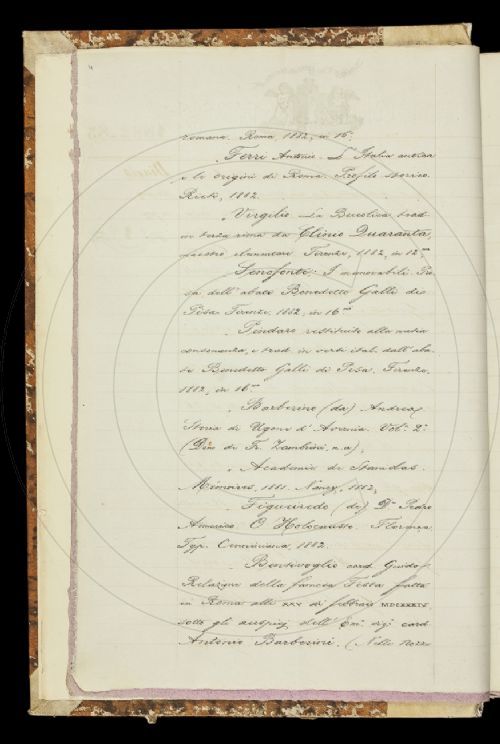 romana. Roma, 1882, in 16.
, Ferri Antonio. L'Italia antica
e le origini di Roma. Profilo storico
Rieti, 1882.
, Virgilio. La Bucolica, trad.
in terza rima da Clinio Quaranta,
maestro elementare Firenze, 1882, in 12.mo
, Senofonte; I memorabili.
dell'abate Benedetto Galli di
Pisa. Firenze, 1882, in 16mo
, Pindaro restituito alla natia
e trad. in versi ital. dall'aba-
te Benedetto Galli di Pisa. Firenze,
1882, in 16mo
, Barberino (da) Andrea,
Storia di Ugone d'Avernia. Vol. 2.
(Dono di Fr. Zambrini, r.a.),
, Academia de Stanislas.
Mémoires, 1881. Nancy, 1882,
, Figueiredo (de) D.r Pedro
Americo O Holocausto. Florença
Typ. Cenniniana, 1882.
, Bentivoglio card. Guido,
Relazione della famosa Festa fatta
in Roma alli XXV di febbraio MDCXXXIV,
sotto gli auspicj dell'Em. sig. card.
Antonio Barberini. (Nelle Nozze